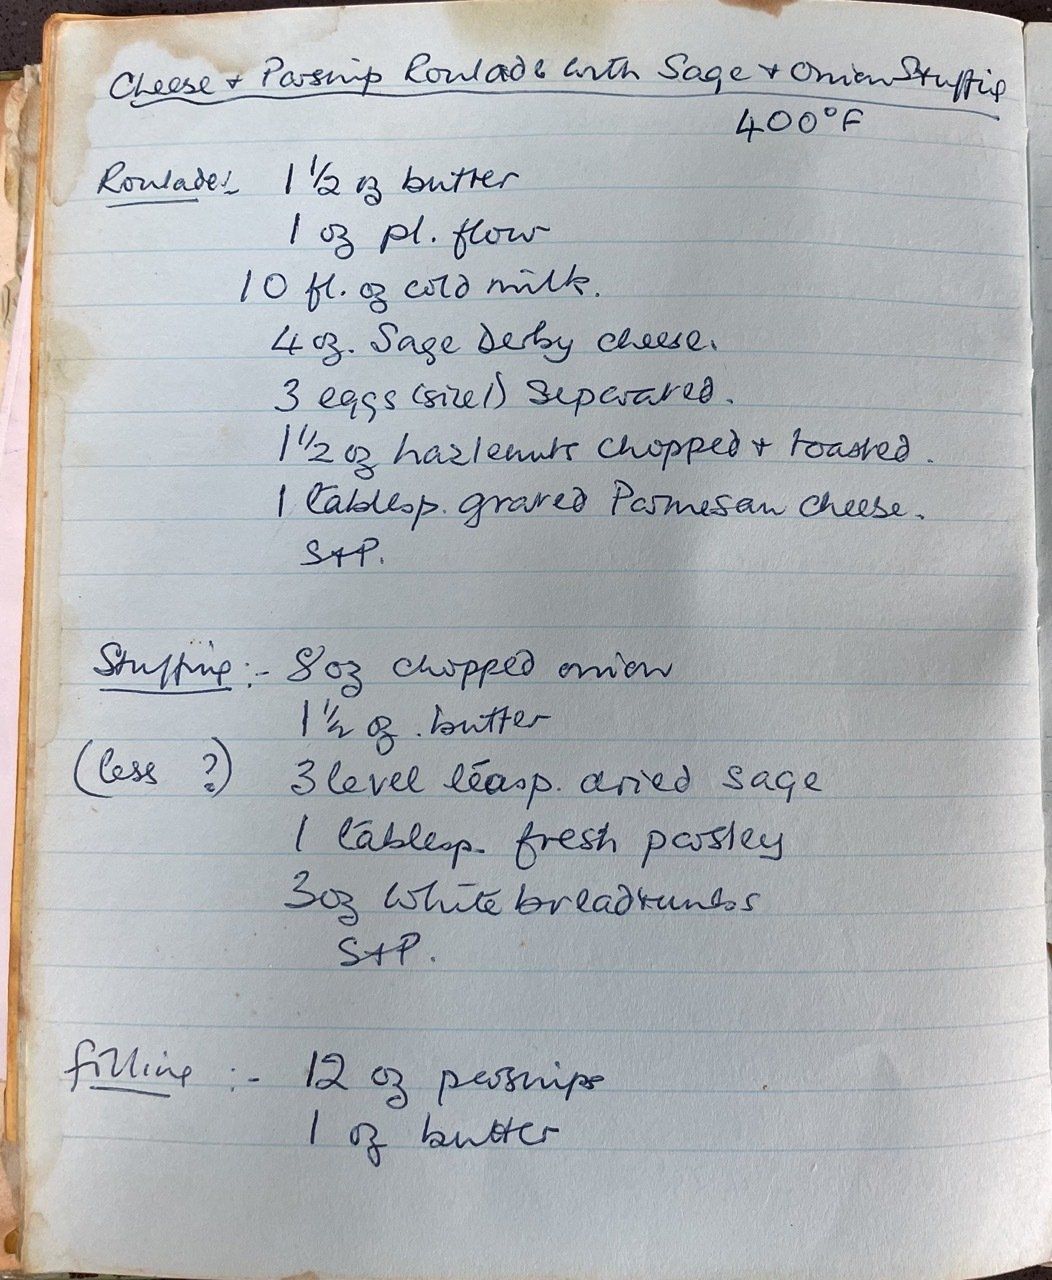 Cheese + Parsnip Roulade with Sage + Onion Stuffing
400°F
Roulade:- 1 1/2 oz butter
1 oz pl. flour
10 fl. oz cold milk.
4 oz. Sage Derby cheese.
3 eggs (size 1) separated.
1 1/2 oz hazlenuts chopped + toasted.
1 tablesp. grated Parmesan cheese.
S+P.
Stuffing:- 8 oz chopped onion
1 1/2 oz. butter
(less ?) 3 level teasp. dried sage
1 tablesp. fresh parsley
3oz white breadcrumbs
S+P.
filling :- 12 oz parsnips
1 oz butter